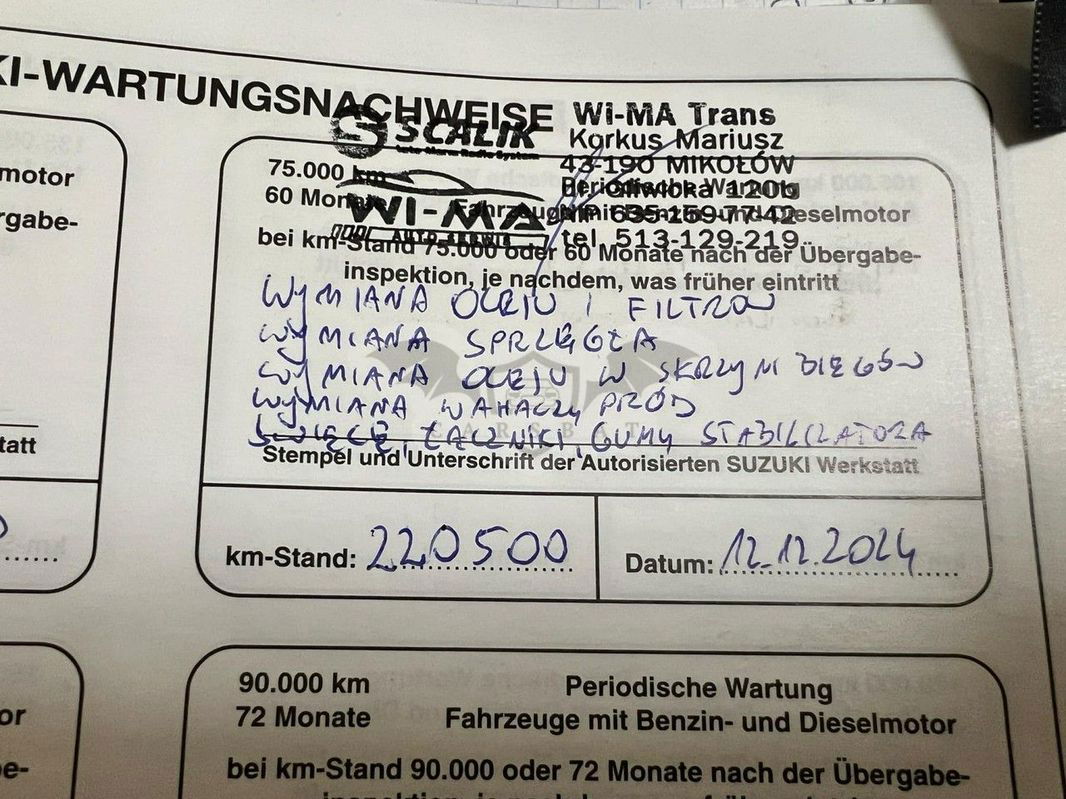 KI-WARTUNGSNACHWEISE
WI-MA Trans
SCALIK
Korkus Mariusz
43-190 MIKOŁÓW
75.000 km
Periodische Wartung
120b
60 Monate
WI-MA
Fahrzeuge mit Benzin- und Dieselmotor
NIP 635-159-77-42
AUTO SERWIS
tel. 513-129-219
bei km-Stand 75.000 oder 60 Monate nach der Übergabe-
inspektion, je nachdem, was früher eintritt
WYMIANA OLEJU I FILTRÓW
WYMIANA SPRZĘGŁA
WYMIANA OLEJU W SKRZYNI BIEGÓW
WYMIANA WAHACZY PRZÓD
ŚWIECE, ŁĄCZNIKI, GUMY STABILIZATORA
CARSBAT
Stempel und Unterschrift der Autorisierten SUZUKI Werkstatt
km-Stand: 220500
Datum: 12.12.2024
motor
rgabe-
tatt
90.000 km
Periodische Wartung
72 Monate
Fahrzeuge mit Benzin- und Dieselmotor
bei km-Stand 90.000 oder 72 Monate nach der Übergabe-
or
be-